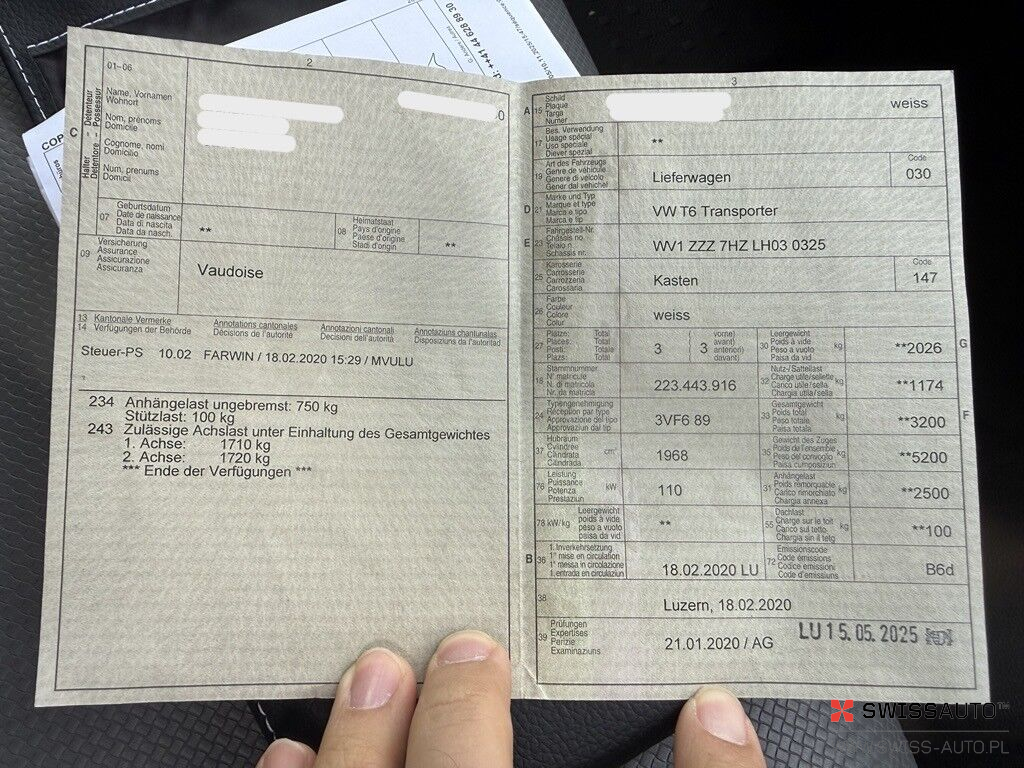 COP
+41 44 628 89 30
2
01–06
C
Halter Detentore
Détenteur Possessur
Name, Vornamen
Wohnort
Nom, prénoms
Domicile
Cognome, nomi
Domicilio
Num, prenums
Domicil
0
07
Geburtsdatum
Date de naissance
Data di nascita
Data da nasch.
**
08
Heimatstaat
Pays d'origine
Paese d'origine
Stadi d'origin
**
09
Versicherung
Assurance
Assicurazione
Assicuranza
Vaudoise
13 Kantonale Vermerke
14 Verfügungen der Behörde
Annotations cantonales
Décisions de l'autorité
Annotazioni cantonali
Decisioni dell'autorità
Annotaziuns chantunalas
Disposiziuns da l'autoritad
Steuer-PS 10.02 FARWIN / 18.02.2020 15:29 / MVULU
234 Anhängelast ungebremst: 750 kg
Stützlast: 100 kg
243 Zulässige Achslast unter Einhaltung des Gesamtgewichtes
1. Achse: 1710 kg
2. Achse: 1720 kg
*** Ende der Verfügungen ***
3
A 15
Schild
Plaque
Targa
Numer
weiss
17
Bes. Verwendung
Usage spécial
Uso speciale
Diever spezial
**
19
Art des Fahrzeugs
Genre de véhicule
Genere di veicolo
Gener dal vehichel
Lieferwagen
Code
030
D 21
Marke und Typ
Marque et type
Marca e tipo
Marca e tip
VW T6 Transporter
E 23
Fahrgestell-Nr.
Châssis no
Telaio n.
Schassis nr.
WV1 ZZZ 7HZ LH03 0325
25
Karosserie
Carrosserie
Carrozzeria
Carossaria
Kasten
Code
147
26
Farbe
Couleur
Colore
Colur
weiss
27
Plätze: Total
Places: Total
Posti: Totale
Plazs: Total
3 ( 3
vorne)
avant)
anteriori)
davant)
30
Leergewicht
Poids à vide
Peso a vuoto
Paisa da vid
kg
**2026
G
18
Stammnummer
N° matricule
N. di matricola
Nr. da matricla
223.443.916
32
Nutz-/Sattellast
Charge utile/sellette
Carico utile/sella
Chargia utila/sella
kg
**1174
24
Typengenehmigung
Réception par type
Approvazione del tipo
Approvaziun dal tip
3VF6 89
33
Gesamtgewicht
Poids total
Peso totale
Paisa totala
kg
**3200
F
37
Hubraum
Cylindrée
Cilindrata
Cilindrada
cm³
1968
35
Gewicht des Zuges
Poids de l'ensemble
Peso del convoglio
Paisa cumposiziun
kg
**5200
76
Leistung
Puissance
Potenza
Prestaziun
kW
110
31
Anhängelast
Poids remorquable
Carico rimorchiato
Chargia annexa
kg
**2500
78 kW/kg
Leergewicht
poids à vide
peso a vuoto
paisa da vid
**
55
Dachlast
Charge sur le toit
Carico sul tetto
Chargia sin il tetg
kg
**100
B 36
1. Inverkehrsetzung
1re mise en circulation
1a messa in circolazione
1. entrada en circulaziun
18.02.2020 LU
72
Emissionscode
Code émissions
Codice emissioni
Code d'emissiuns
B6d
38
Luzern, 18.02.2020
39
Prüfungen
Expertises
Perizie
Examinaziuns
21.01.2020 / AG
LU 15. 05. 2025
SWISSAUTO™
SWISS-AUTO.PL